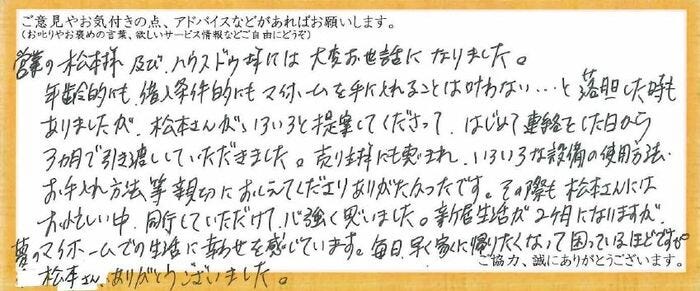 ご意見やお気付きの点、アドバイスなどがあればお願いします。
(お叱りやお褒めの言葉、欲しいサービス情報などご自由にどうぞ)
営業の松本様 及び ハウスドゥ様には 大変お世話になりました。
年齢的にも、借入条件的にもマイホームを手に入れることは叶わない…と 落胆した時も
ありましたが、松本さんが、いろいろと提案してくださって、はじめて連絡をした日から
3ヵ月で引き渡ししていただきました。売り主様にも恵まれ、いろいろな設備の使用方法、
お手入れ方法等 親切におしえてくださりありがたかったです。その際も 松本さんには
お忙しい中、同行していただけて、心強く思いました。新居生活が2ヶ月になりますが、
夢のマイホームでの生活に幸せを感じています。毎日、早く家に帰りたくなって困っているほどですが
松本さん、ありがとうございました。
ご協力、誠にありがとうございます。